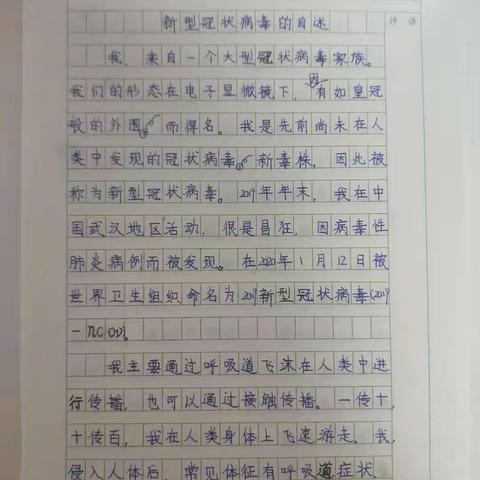 新型冠状病毒的自述
评语
我，来自一个大型冠状病毒家族。
我们的形态在电子显微镜下，因有如皇冠
般的外围，而得名。我是先前尚未在人
类中发现的冠状病毒。新毒株，因此被
称为新型冠状病毒。2019年年末，我在中
国武汉地区活动，很是昌狂，因病毒性
肺炎病例而被发现。在2020年1月12日被
世界卫生组织命名为2019新型冠状病毒(2019
－nCoV)。
我主要通过呼吸道飞沫在人类中进
行传播，也可以通过接触传播。一传十，
十传百，我在人类身体上飞速游走。我，
侵入人体后，常见体征有呼吸道症状、